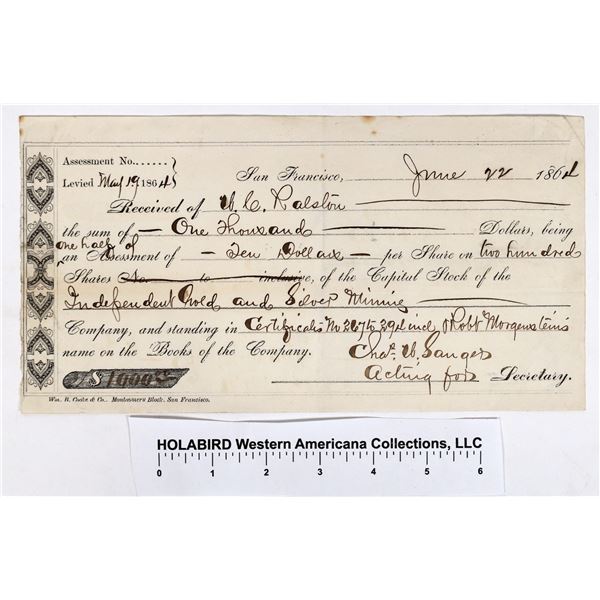 Assessment No......
Levied May 19 1864
San Francisco, June 22 1864
Received of W. C. Ralston
the sum of — One Thousand Dollars, being
one half of
an Assessment of — Ten Dollars — per Share on two hundred
Shares No. to inclusive, of the Capital Stock of the
Independent Gold and Silver Mining
Company, and standing in Certificates No 267 to 29 incl Robt Morgenstein's
name on the Books of the Company.
Chas W. Sanger
Acting for Secretary.
$1000
Wm. B. Cooke & Co., Montgomery Block, San Francisco.
HOLABIRD Western Americana Collections, LLC
0 1 2 3 4 5 6